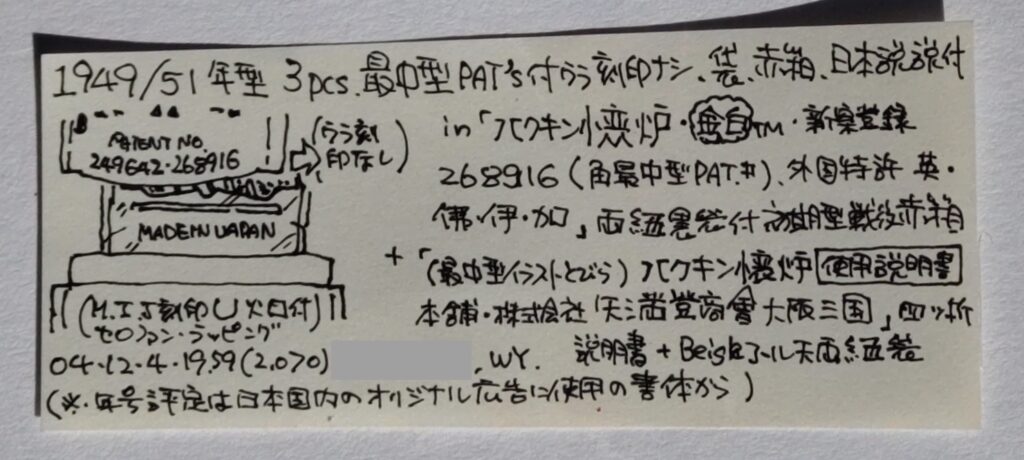 1949/51年型 3pcs.最中型PAT's付ウラ刻印ナシ、袋、赤箱、日本説説付
PATENT NO.
249642・268916
(ウラ刻
印なし)
MADE IN JAPAN
(M.I.J刻印U火口付)
セロファン・ラッピング
04・12・4・19:59(2,070)
, WY.
in「ハクキン懐炉・ TM・新案登録
268916(角最中型PAT.#)、外国特許 英・
佛・伊・加」両紐付初期型戦後赤箱
+「(最中型イラストとびら)ハクキン懐炉 使用説明書
本舗・株式会社 矢満登商會 大阪三国」四ッ折
説明書+Beigeフール天両紐袋
(※.年号評定は日本国内のオリジナル広告に使用の書体から)